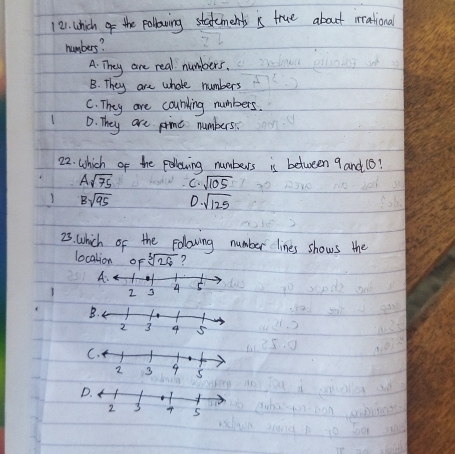 1 21. Which of the following statements is true about irrational
numbers?
A. They are real numbers.
B. They are whole numbers
C. They are counting numbers.
1 D. They are prime numbers.
22. Which of the following numbers is between 9 and 10?
A √75 C. √105
1 B √95 D. √125
23. Which of the following number lines shows the
location of ∛28?
A.
1 2 3 4 5
B.
2 3 4 5
C.
2 3 4 5
D.
2 3 4 5